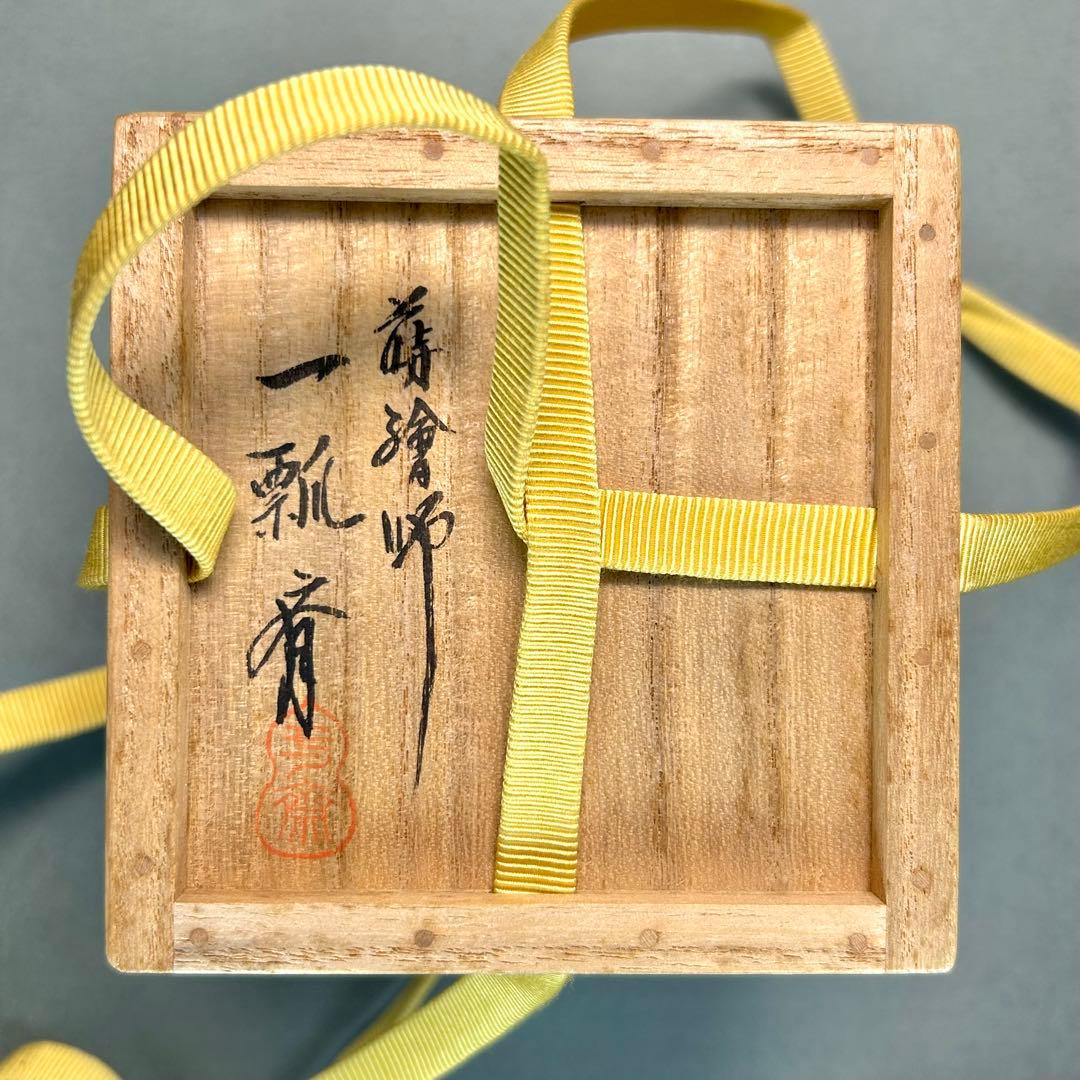 蒔繪師
一瓢斎